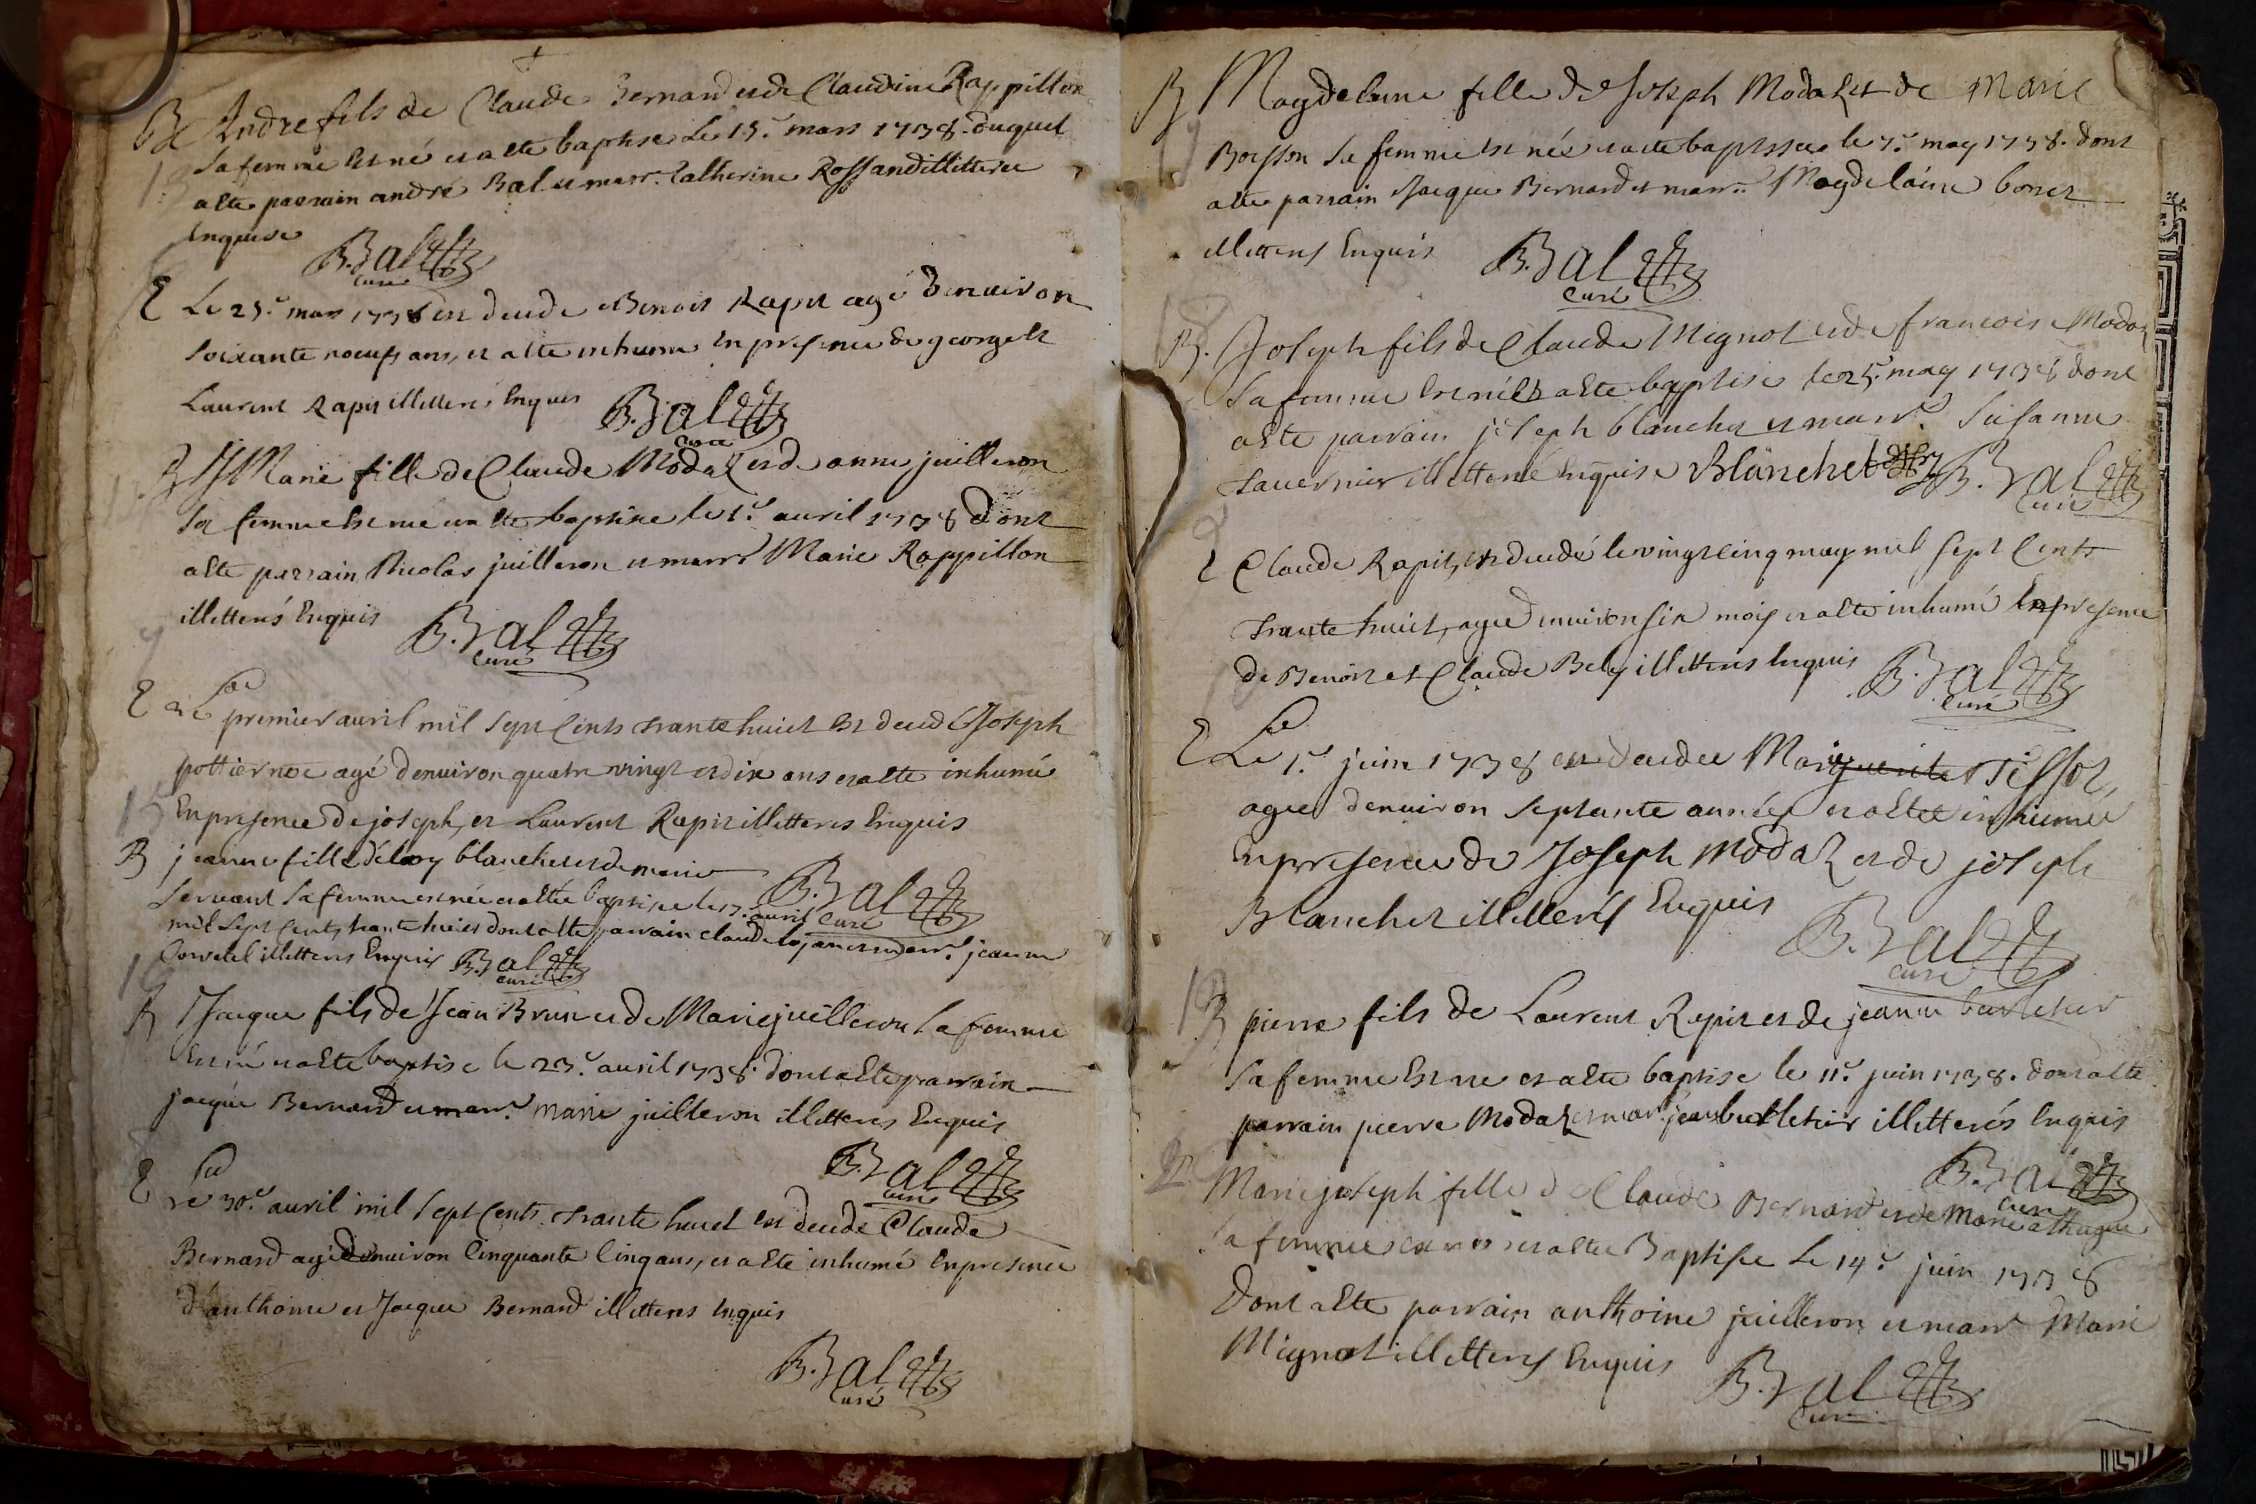 B André fils de Claude Bernard et de Claudine Rappillon
sa femme est né et a ete baptise le 15e mars 1738. duquel
a ete parrain andré Bal et marr. Catherine Rossand illitteree
enquise
B. Bal
curé
E Le 25e mars 1738 est decede Benoit Rapit agé denuiron
soixante noeufs ans, et a ete inhumé en presence de george et
Laurent Rapit illitterés enquis B. Bal
curé
B Marie fille de Claude Modaz et de anne juilleron
sa femme est née et a ete baptisee le 1r auril 1738 dont
a ete parrain Nicolas juilleron et marr. Marie Rappillon
illitterés enquis B. Bal
curé
E Le premier auril mil sept cents trante huict est decedé Joseph
agé denuiron quatre vingt et dix ans et a ete inhumé
En presence de joseph, et Laurent Rapit illitteres enquis
B jeanne fille deloy blanchet et de marie B. Bal
seruant sa femme est née et a ete baptisee le 17. auril curé
mil sept cents trante huict dont a ete parrain claude et marr. jeanne
illitteres enquis B. Bal
curé
B Jacque fils de Jean Brun et de Marie juilleron sa femme
est né et a ete baptise le 23e auril 1738. dont a ete parrain
jacque Bernard et marr. marie juilleron illitteres enquis
B. Bal
curé
E Le 30e auril mil sept cents trante huict est decedé Claude
Bernard agé denuiron cinquante cinq ans, et a ete inhumé en presence
d'anthoine et Jacque Bernard illitteres enquis
B. Bal
curé
B Magdelaine fille de Joseph Modaz et de Marie
Boisson sa femme est née et a ete baptissee le 7e may 1738. dont
a ete parrain Jacque Bernard et marr. Magdelaine bonet
illitterés enquis B. Bal
curé
B. Joseph fils de Claude Mignot et de francoise Modaz
sa femme est né et a ete baptise le 25e may 1738 dont
a ete parrain joseph blanchet et marr. Susanne
tauernier illitteree enquise Blanchet B. Bal
curé
E Claude Rapit, est decedé le vingt cinq may mil sept cents
trante huict, agé enuiron six mois et a ete inhumé en presence
de Benoit et Claude Bely illitteres enquis B. Bal
curé
E Le 1r juin 1738 est decedee Marie Tissot,
agee denuiron septante années et a ete inhumee
en presence de Joseph Modaz et de joseph
Blanchet illitterés enquis B. Bal
curé
B pierre fils de Laurent Rapit et de jeanne
sa femme est né et a ete baptise le 11e juin 1738. dont a ete
parrain pierre Modaz et marr. illitterés enquis
B. Bal
curé
Marie joseph fille de Claude Bernard et de Marie
sa femme est née et a ete Baptisee le 14e juin 1738
dont a ete parrain anthoine juilleron et marr. Marie
Mignot illitteres enquis B. Bal
curé